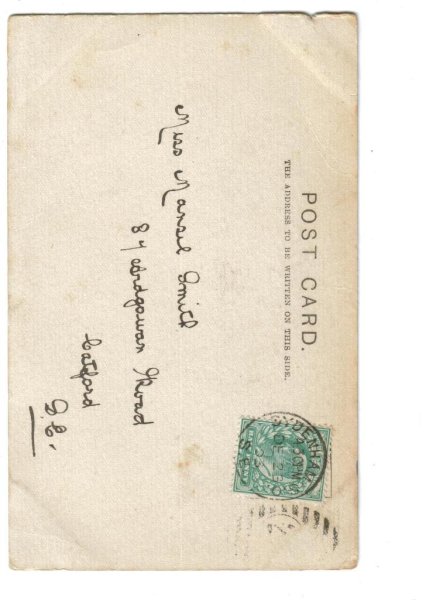 POST CARD.
THE ADDRESS TO BE WRITTEN ON THIS SIDE.
Miss Mansel Smith
87 Ardgowan Road
Catford
S.E.
SYDENHAM
S.E.